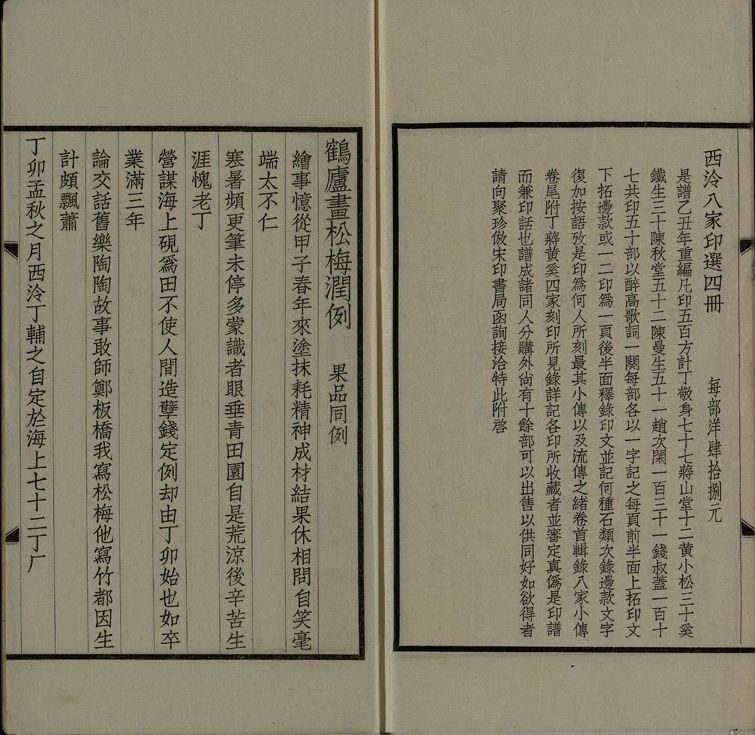 西泠八家印選四冊　每部洋肆拾捌元
是譜乙丑年重編凡印五百方計丁敬身七十七蔣山堂十二黃小松三十奚
鐵生三十陳秋堂五十二陳曼生五十一趙次閑一百三十一錢叔蓋一百十
七共印五十部以醉高歌詞一闋每部各以一字記之每頁前半面上拓印文
下拓邊款或一二印爲一頁後半面釋錄印文並記何種石類次錄邊款文字
復加按語攷是印爲何人所刻最其小傳以及流傳之緒卷首輯錄八家小傳
卷尾附丁蔣黃奚四家刻印所見錄詳記各印所收藏者並審定真僞是印譜
而兼印話也譜成諸同人分購外尚有十餘部可以出售以供同好如欲得者
請向聚珍倣宋印書局函詢接洽特此附啓
鶴廬畫松梅潤例　果品同例
繪事憶從甲子春年來塗抹耗精神成材結果休相問自笑毫
端太不仁
寒暑頻更筆未停多蒙識者眼垂青田園自是荒涼後辛苦生
涯愧老丁
營謀海上硯爲田不使人間造孽錢定例却由丁卯始也如卒
業滿三年
論交話舊樂陶陶故事敢師鄭板橋我寫松梅他寫竹都因生
計頗飄蕭
丁卯孟秋之月西泠丁輔之自定於海上七十二丁厂